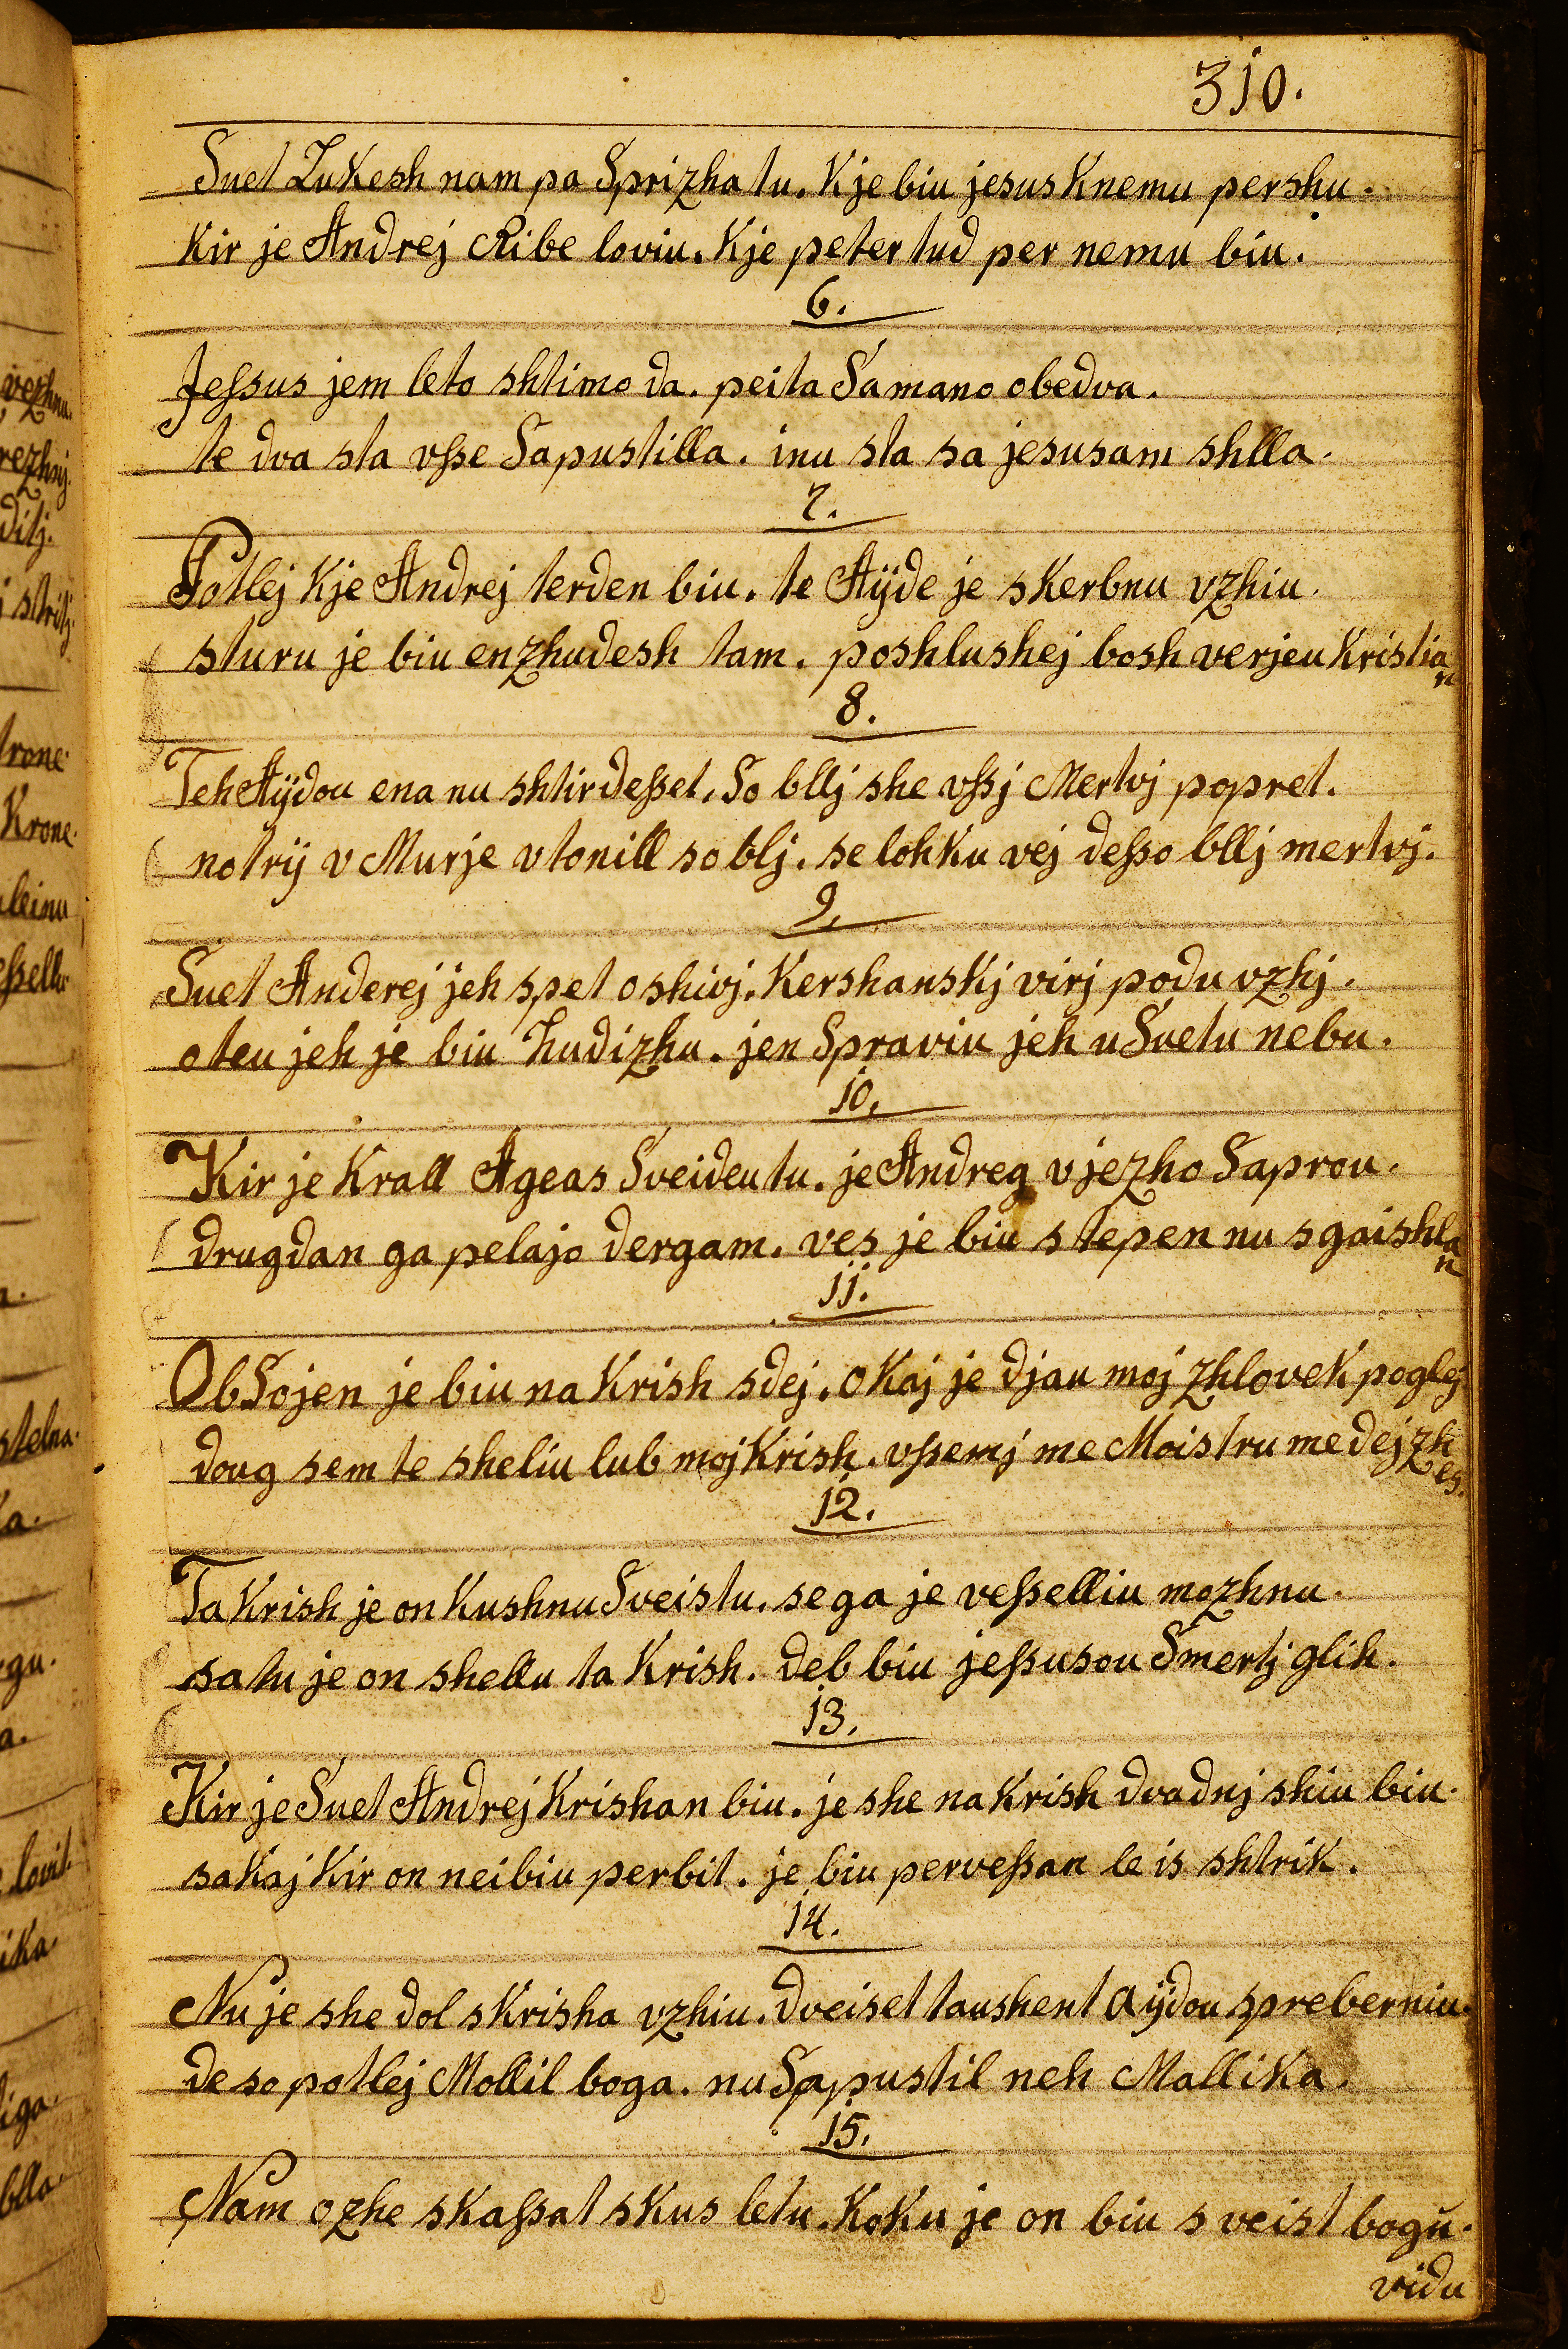 310.
Suet Lukesh nam pa Sprizha tu. Kje biu jesus Knemu pershu.
Kir je Andrej Ribe loviu. Kje peter tud per nemu biu.
6.
Jeſsus jem leto shtimo da. peita Samano obedva.
te dva sta vſse Sapustilla. inu sta sa jesusam shlla.
7.
Potlej Kje Andrej terden biu. te Aÿde je skerbnu vzhiu.
sturu je biu enzhudesh tam. poshlushej bosh verjeu Kristian
8.
Teh Aÿdou ena nu shtirdeſset. So bllj she vſsj Mertvj popret.
notrij v Murje vtonill so blj. se lohku vej deſso bllj mertvj.
9.
Suet Anderej jeh spet oshivj. Kershanskj virj podu vzhj.
oteu jeh je biu hudizhu. jen Spraviu jeh u Suetu nebu.
10.
Kir je Krall Ageas Sveideu tu. je Andreg vjezho Saprou.
drugdan ga pelajo dergam. ves je biu stepen nu sgaishlan
11.
ObSojen je biu na Krish sdej. oKaj je djau moj zhlovek poglej
doug sem te sheliu lub moj Krish. vſsemj me Moistru me dej zhes.
12.
Ta Krish je on Kushnu Sveistu. se ga je veſselliu mozhnu.
satu je on shellu ta Krish. deb biu jeſsusou Smertj glih.
13.
Kir je Suet Andrej Krishan biu. je she na Krish dvadnj shiu biu.
saKaj Kir on neibiu perbit. je biu perveſsan le is shtrik.
14.
Nu je she dol s Krisha vzhiu. dveiset taushent aÿdou spreberniu.
de so potlej Mollil boga. nu Sapustil neh Mallika.
15.
Nam ozhe skaſsat skus letu. KoKu je on biu sveist bogŭ.
vidu